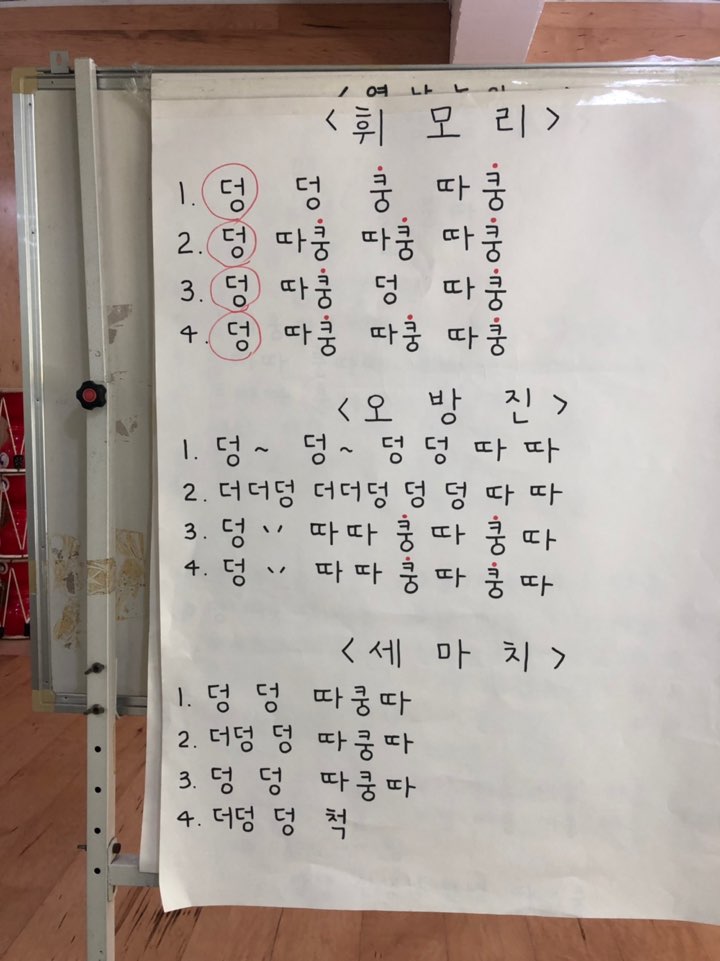 <휘 모 리>
1. 덩 덩 쿵 따쿵
2. 덩 따쿵 따쿵 따쿵
3. 덩 따쿵 덩 따쿵
4. 덩 따쿵 따쿵 따쿵
<오 방 진>
1. 덩~ 덩~ 덩 덩 따 따
2. 더더덩 더더덩 덩 덩 따 따
3. 덩 따따 쿵 따 쿵 따
4. 덩 따따 쿵 따 쿵 따
<세 마 치>
1. 덩 덩 따쿵따
2. 더덩 덩 따쿵따
3. 덩 덩 따쿵따
4. 더덩 덩 척